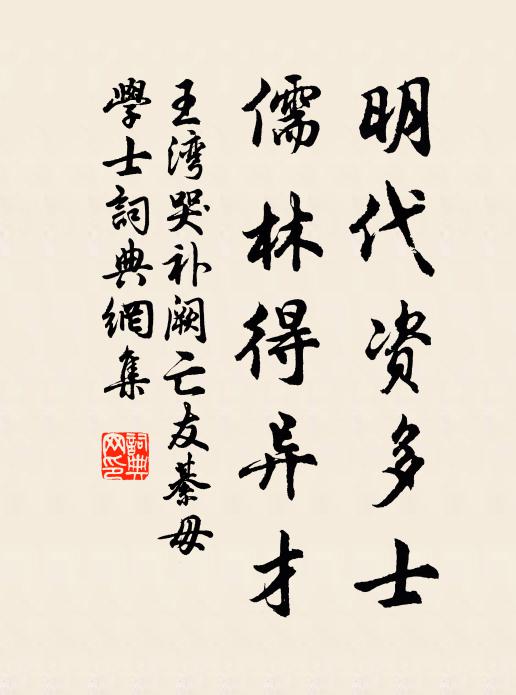 明代资多士
儒林得异才
王湾哭补阙亡友綦毋
學士詞典網集
詞典網印